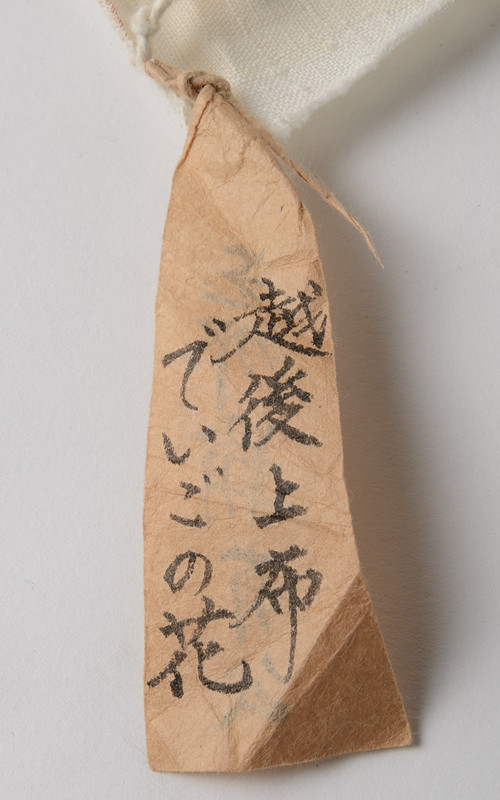 越後上布
でいごの花